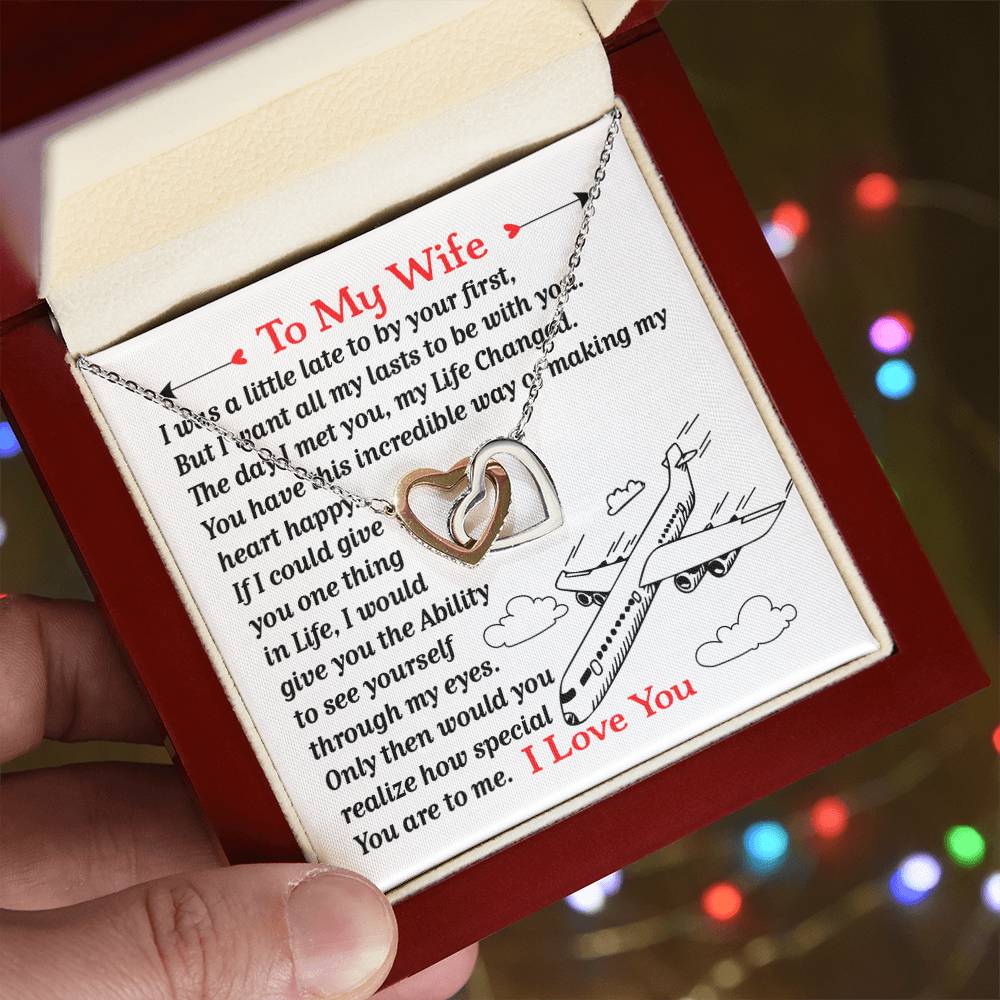 To My Wife
I was a little late to by your first,
But I want all my lasts to be with you.
The day I met you, my Life Changed.
You have this incredible way of making my
heart happy.
If I could give
you one thing
in Life, I would
give you the Ability
to see yourself
through my eyes.
Only then would you
realize how special
You are to me. I Love You